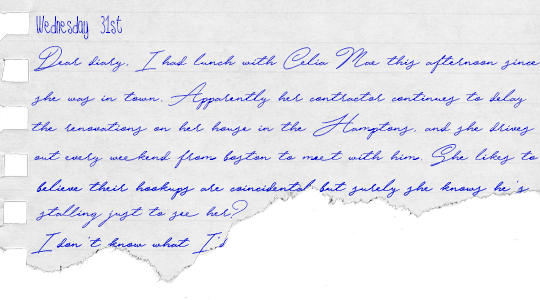 Wednesday 31st
Dear diary, I had lunch with Celia Mae this afternoon since
she was in town. Apparently her contractor continues to delay
the renovations on her house in the Hamptons, and she drives
out every weekend from boston to meet with him. She likes to
believe their hookups are coincidental but surely she knows he's
stalling just to see her?
I don't know what I'd